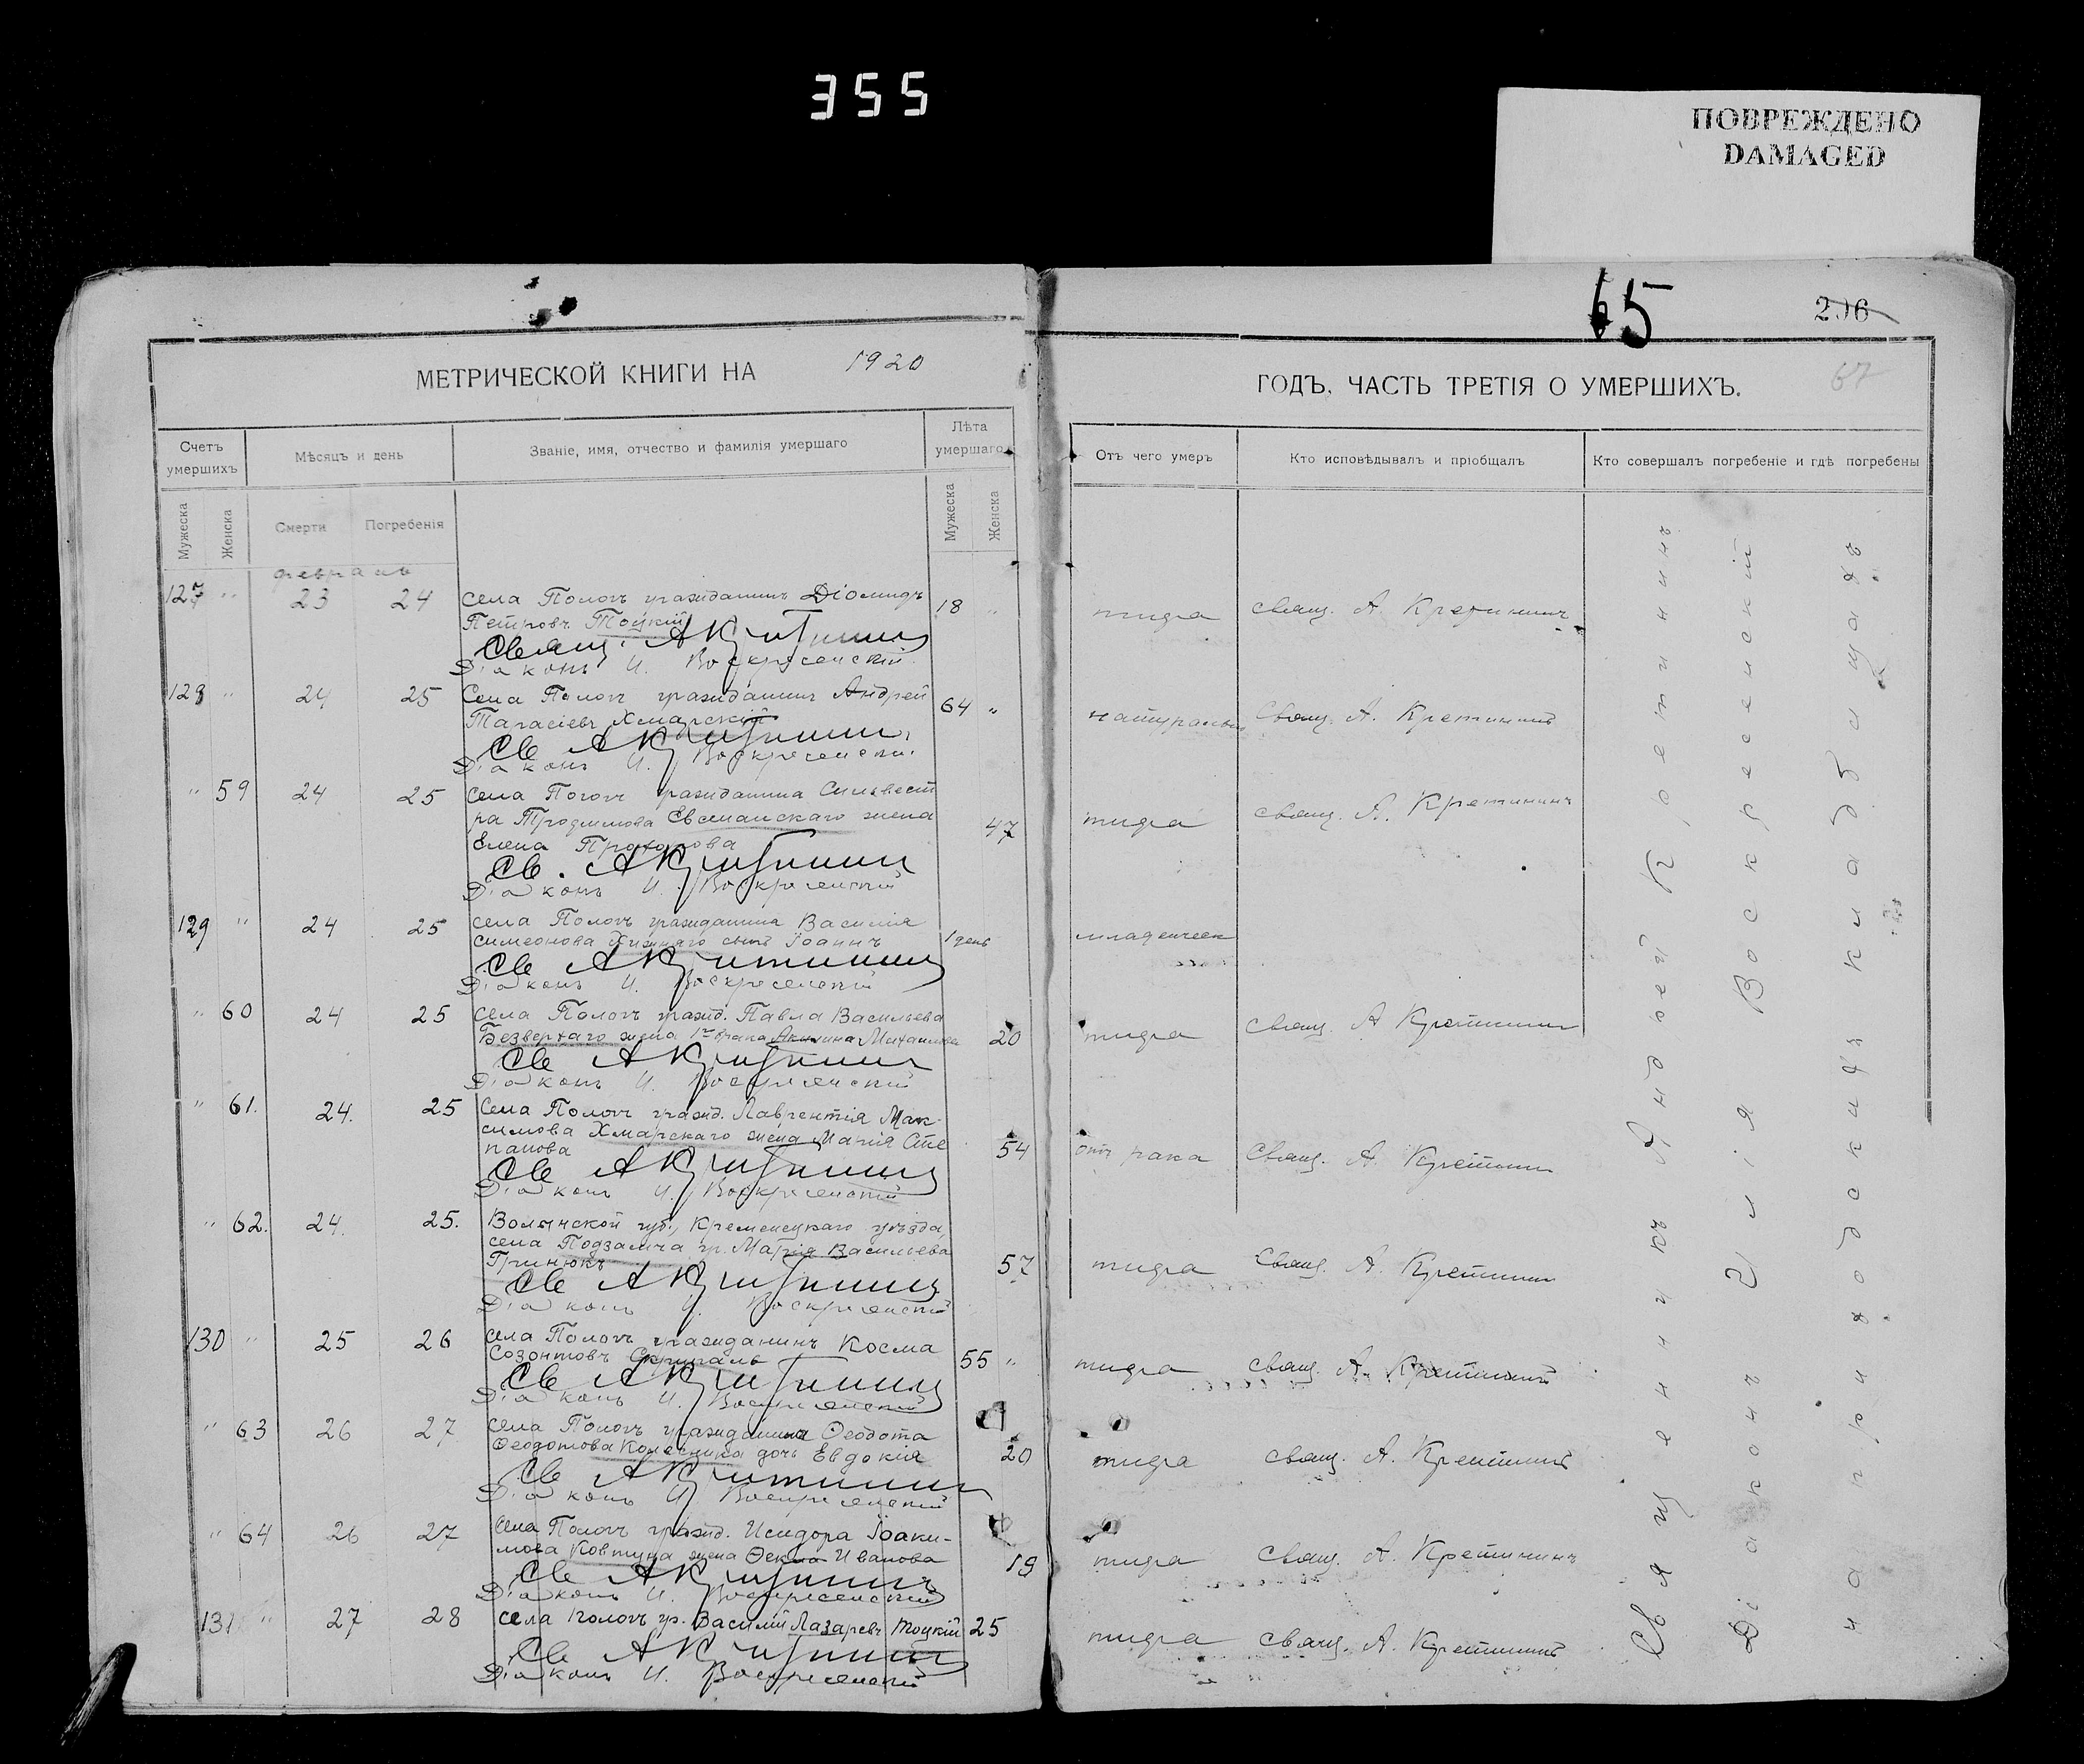 355
ПОВРЕЖДЕНО
DAMAGED
65
206
67
МЕТРИЧЕСКОЙ КНИГИ НА 1920
ГОДЪ, ЧАСТЬ ТРЕТІЯ О УМЕРШИХЪ.
Счетъ умершихъ
Мѣсяцъ и день
Званіе, имя, отчество и фамилія умершаго
Лѣта умершаго
Отъ чего умеръ
Кто исповѣдывалъ и пріобщалъ
Кто совершалъ погребеніе и гдѣ погребены
Мужеска
Женска
Смерти
Погребенія
Мужеска
Женска
февраль
127 " 23 24 Села Пологъ гражданинъ Діомидъ 18 " тифа Свящ. А. Кретининъ
Петровъ Тоцкій
Свящ. А Кретининъ
Діаконъ И. Воскресенскій
128 " 24 25 Села Пологъ гражданинъ Андрей 64 " натуральн Свящ. А. Кретининъ
Тарасіевъ Хмарскій
Св АКретининъ
Діаконъ И. Воскресенскій
" 59 24 25 Села Пологъ гражданина Сильвест
ра Трофимова Евсманскаго жена 47 тифа Свящ. А. Кретининъ
Елена Прохорова
Св. АКретининъ
Діаконъ И. Воскресенскій
129 " 24 25 Села Пологъ гражданина Василія
Симеонова Хижняго сынъ Іоаннъ 1 день младенческ
Св АКретининъ
Діаконъ И. Воскресенскій
" 60 24 25 Села Пологъ гражд. Павла Васильева
Безверхаго жена 1го брака Акилина Михаилова 20 тифа Свящ. А Кретининъ
Св АКретининъ
Діаконъ И. Воскресенскій
" 61. 24. 25 Села Пологъ гражд. Лаврентія Мак-
симова Хмарскаго жена Марія Сте 54 отъ рака Свящ. А. Кретининъ
панова
Св АКретининъ
Діаконъ И. Воскресенскій
" 62. 24. 25. Волынской губ., Кременецкаго уѣзда,
села Подзамча гр. Марія Васильева 57 тифа Свящ. А. Кретининъ
Гринюкъ
Св АКретининъ
Діаконъ И. Воскресенскій
130 " 25 26 Села Пологъ гражданинъ Косма
Созонтовъ Скрипаль 55 " тифа Свящ. А. Кретининъ
Св АКретининъ
Діаконъ И. Воскресенскій
" 63 26 27 Села Пологъ гражданина Ѳеодота
Ѳеодотова Колесника дочь Евдокія 20 тифа Свящ. А. Кретининъ
Св АКретининъ
Діаконъ И. Воскресенскій
" 64 26 27 Села Пологъ гражд. Исидора Іоаки-
мова Ковтуна жена Ѳекла Иванова 19 тифа Свящ. А. Кретининъ
Св АКретининъ
Діаконъ И. Воскресенскій
131 " 27 28 Села Пологъ гр. Василій Лазаревъ Тоцкій 25 тифа Свящ. А. Кретининъ
Св АКретининъ
Діаконъ И. Воскресенскій
Священникъ Андрей Кретининъ
Діаконъ Илія Воскресенскій
на приходскихъ кладбищахъ